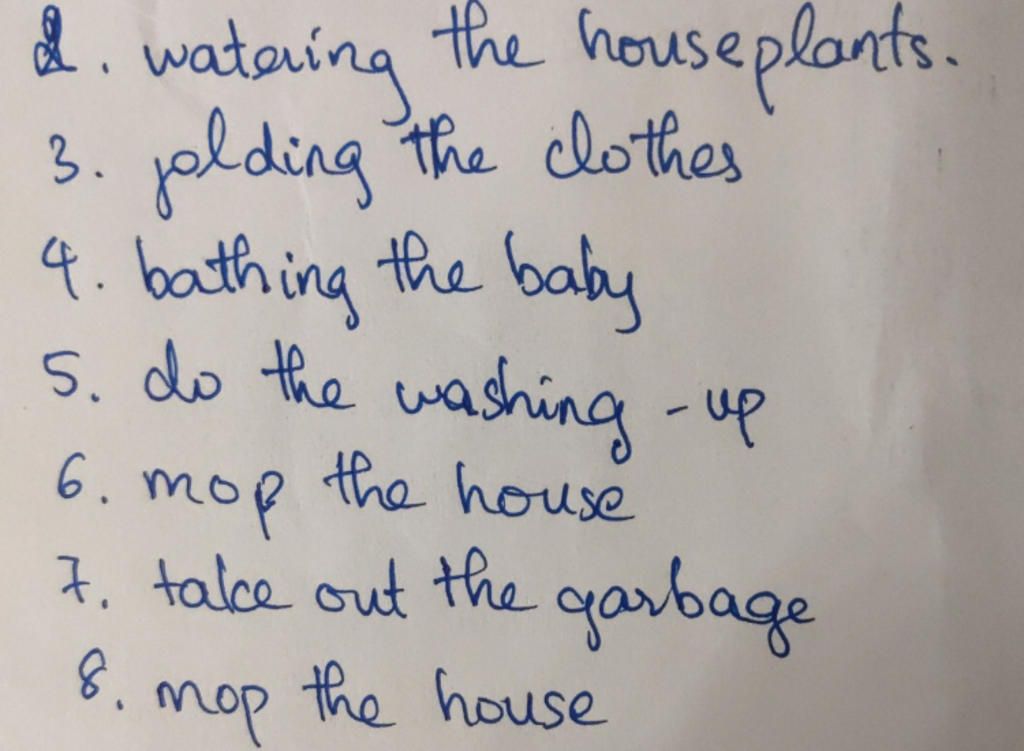 2. watering the houseplants.
3. folding the clothes
4. bathing the baby
5. do the washing-up
6. mop the house
7. take out the garbage
8. mop the house